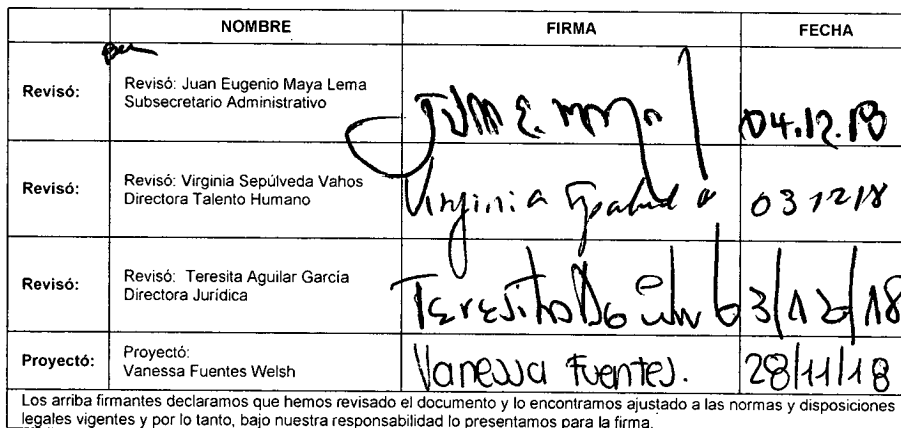 NOMBRE FIRMA FECHA
Revisó: Revisó: Juan Eugenio Maya Lema
Subsecretario Administrativo
04.12.18
Revisó: Revisó: Virginia Sepúlveda Vahos
Directora Talento Humano
Virginia 03 12 18
Revisó: Revisó: Teresita Aguilar García
Directora Jurídica
Teresita 3/12/18
Proyectó: Proyectó:
Vanessa Fuentes Welsh
Vanessa Fuentes. 28/11/18
Los arriba firmantes declaramos que hemos revisado el documento y lo encontramos ajustado a las normas y disposiciones
legales vigentes y por lo tanto, bajo nuestra responsabilidad lo presentamos para la firma.